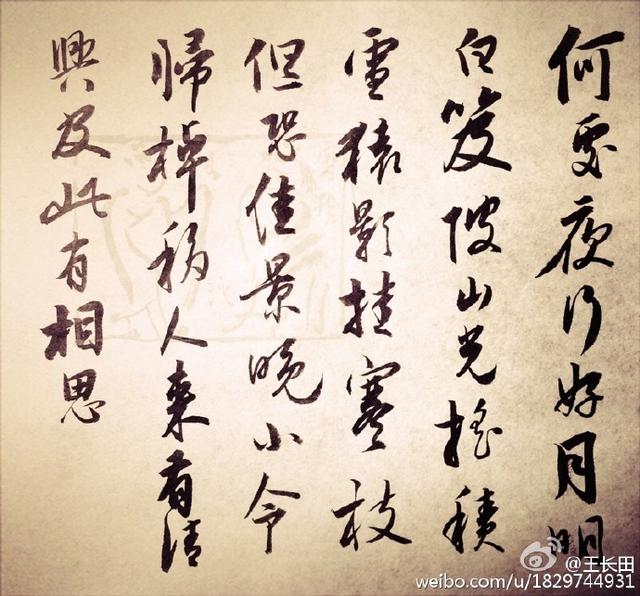 何處夜行好月明
白笈陂山光搖積
雪猿影挂寒枝
但恐佳景晚小令
歸棹移人來有清
興及此有相思
@王长田
weibo.com/u/1829744931